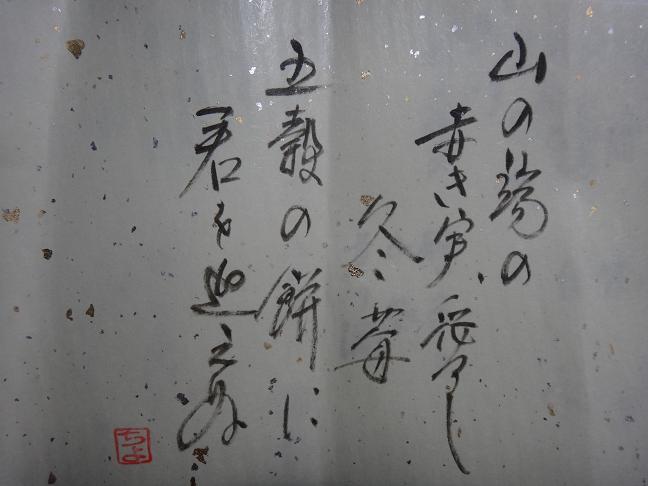 山の湯の
赤き実、愛し
冬苺
五穀の餅に
君を迎えぬ
ちよ